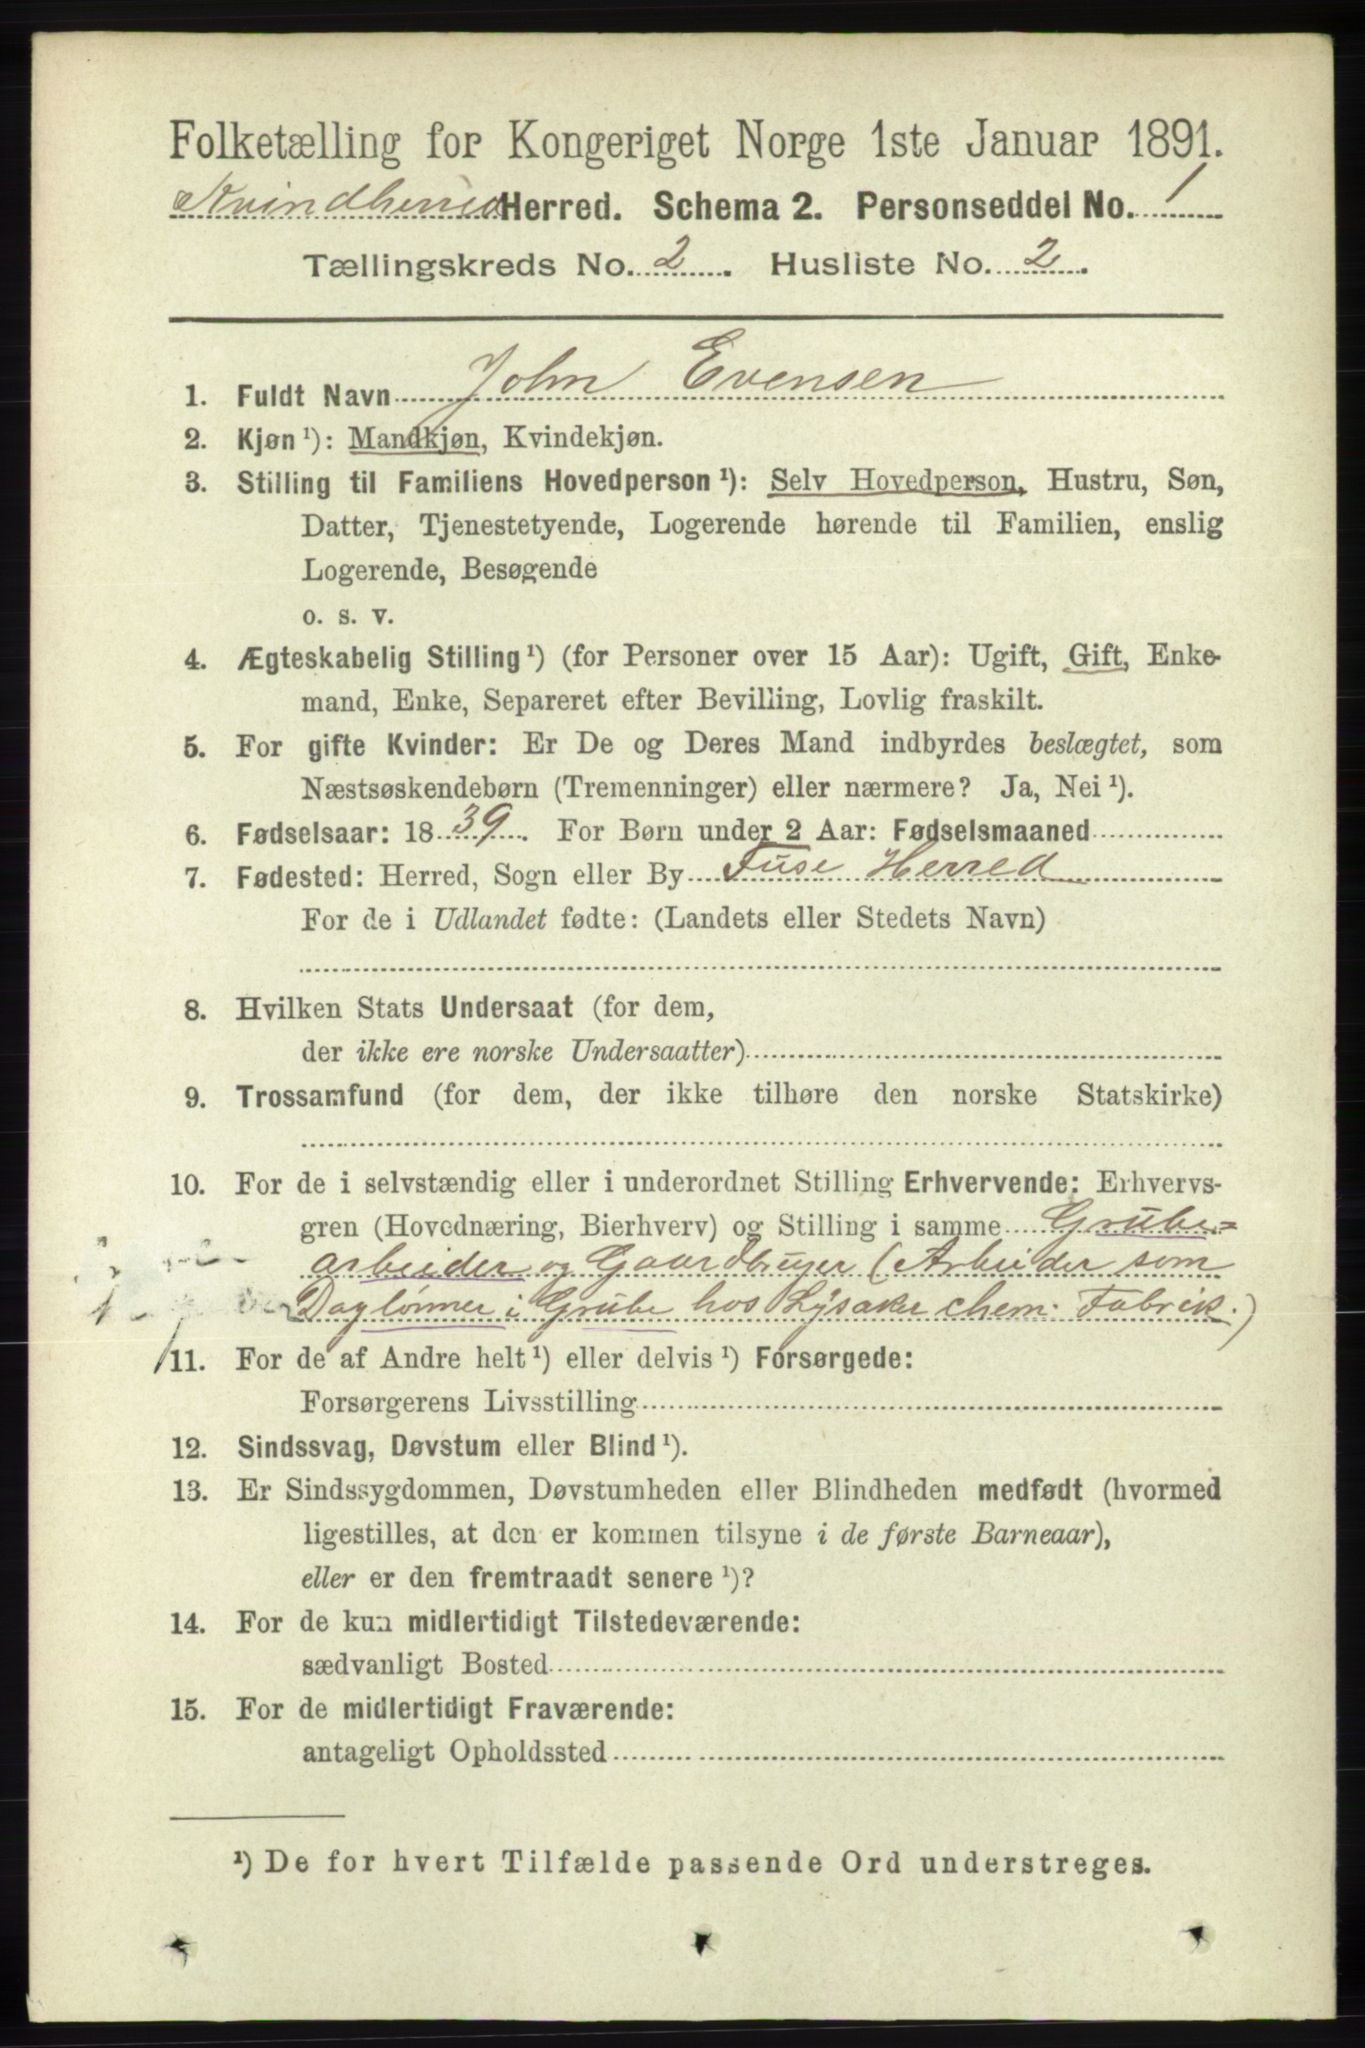 Folketælling for Kongeriget Norge 1ste Januar 1891.
Kvindherred Herred. Schema 2. Personseddel No. 1
Tællingskreds No. 2. Husliste No. 2.
1. Fuldt Navn John Evensen
2. Kjøn ¹): Mandkjøn, Kvindekjøn.
3. Stilling til Familiens Hovedperson ¹): Selv Hovedperson, Hustru, Søn,
Datter, Tjenestetyende, Logerende hørende til Familien, enslig
Logerende, Besøgende
o. s. v.
4. Ægteskabelig Stilling ¹) (for Personer over 15 Aar): Ugift, Gift, Enke-
mand, Enke, Separeret efter Bevilling, Lovlig fraskilt.
5. For gifte Kvinder: Er De og Deres Mand indbyrdes beslægtet, som
Næstsøskendebørn (Tremenninger) eller nærmere? Ja, Nei ¹).
6. Fødselsaar: 1839. For Børn under 2 Aar: Fødselsmaaned
7. Fødested: Herred, Sogn eller By Fuse Herred
For de i Udlandet fødte: (Landets eller Stedets Navn)
8. Hvilken Stats Undersaat (for dem,
der ikke ere norske Undersaatter)
9. Trossamfund (for dem, der ikke tilhøre den norske Statskirke)
10. For de i selvstændig eller i underordnet Stilling Erhvervende: Erhvervs-
gren (Hovednæring, Bierhverv) og Stilling i samme Grube=
arbeider og Gaardbruger (Arbeider som
Daglønner i Grube hos Lysaker chem. Fabrik.)
11. For de af Andre helt ¹) eller delvis ¹) Forsørgede:
Forsørgerens Livsstilling
12. Sindssvag, Døvstum eller Blind ¹).
13. Er Sindssygdommen, Døvstumheden eller Blindheden medfødt (hvormed
ligestilles, at den er kommen tilsyne i de første Barneaar),
eller er den fremtraadt senere ¹)?
14. For de kun midlertidigt Tilstedeværende:
sædvanligt Bosted
15. For de midlertidigt Fraværende:
antageligt Opholdssted
¹) De for hvert Tilfælde passende Ord understreges.